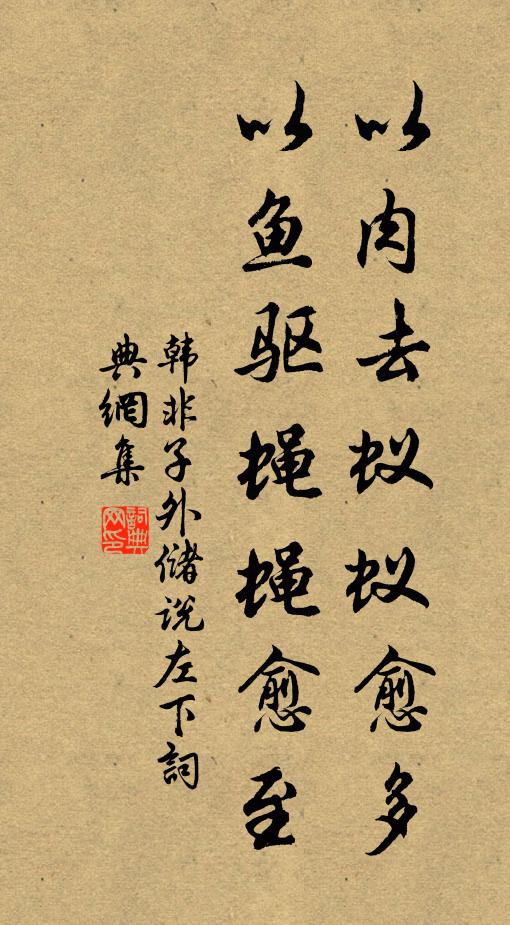 以肉去蚁蚁愈多
以鱼驱蝇蝇愈至
韩非子外儲说左下詞
典網集
詞典网印